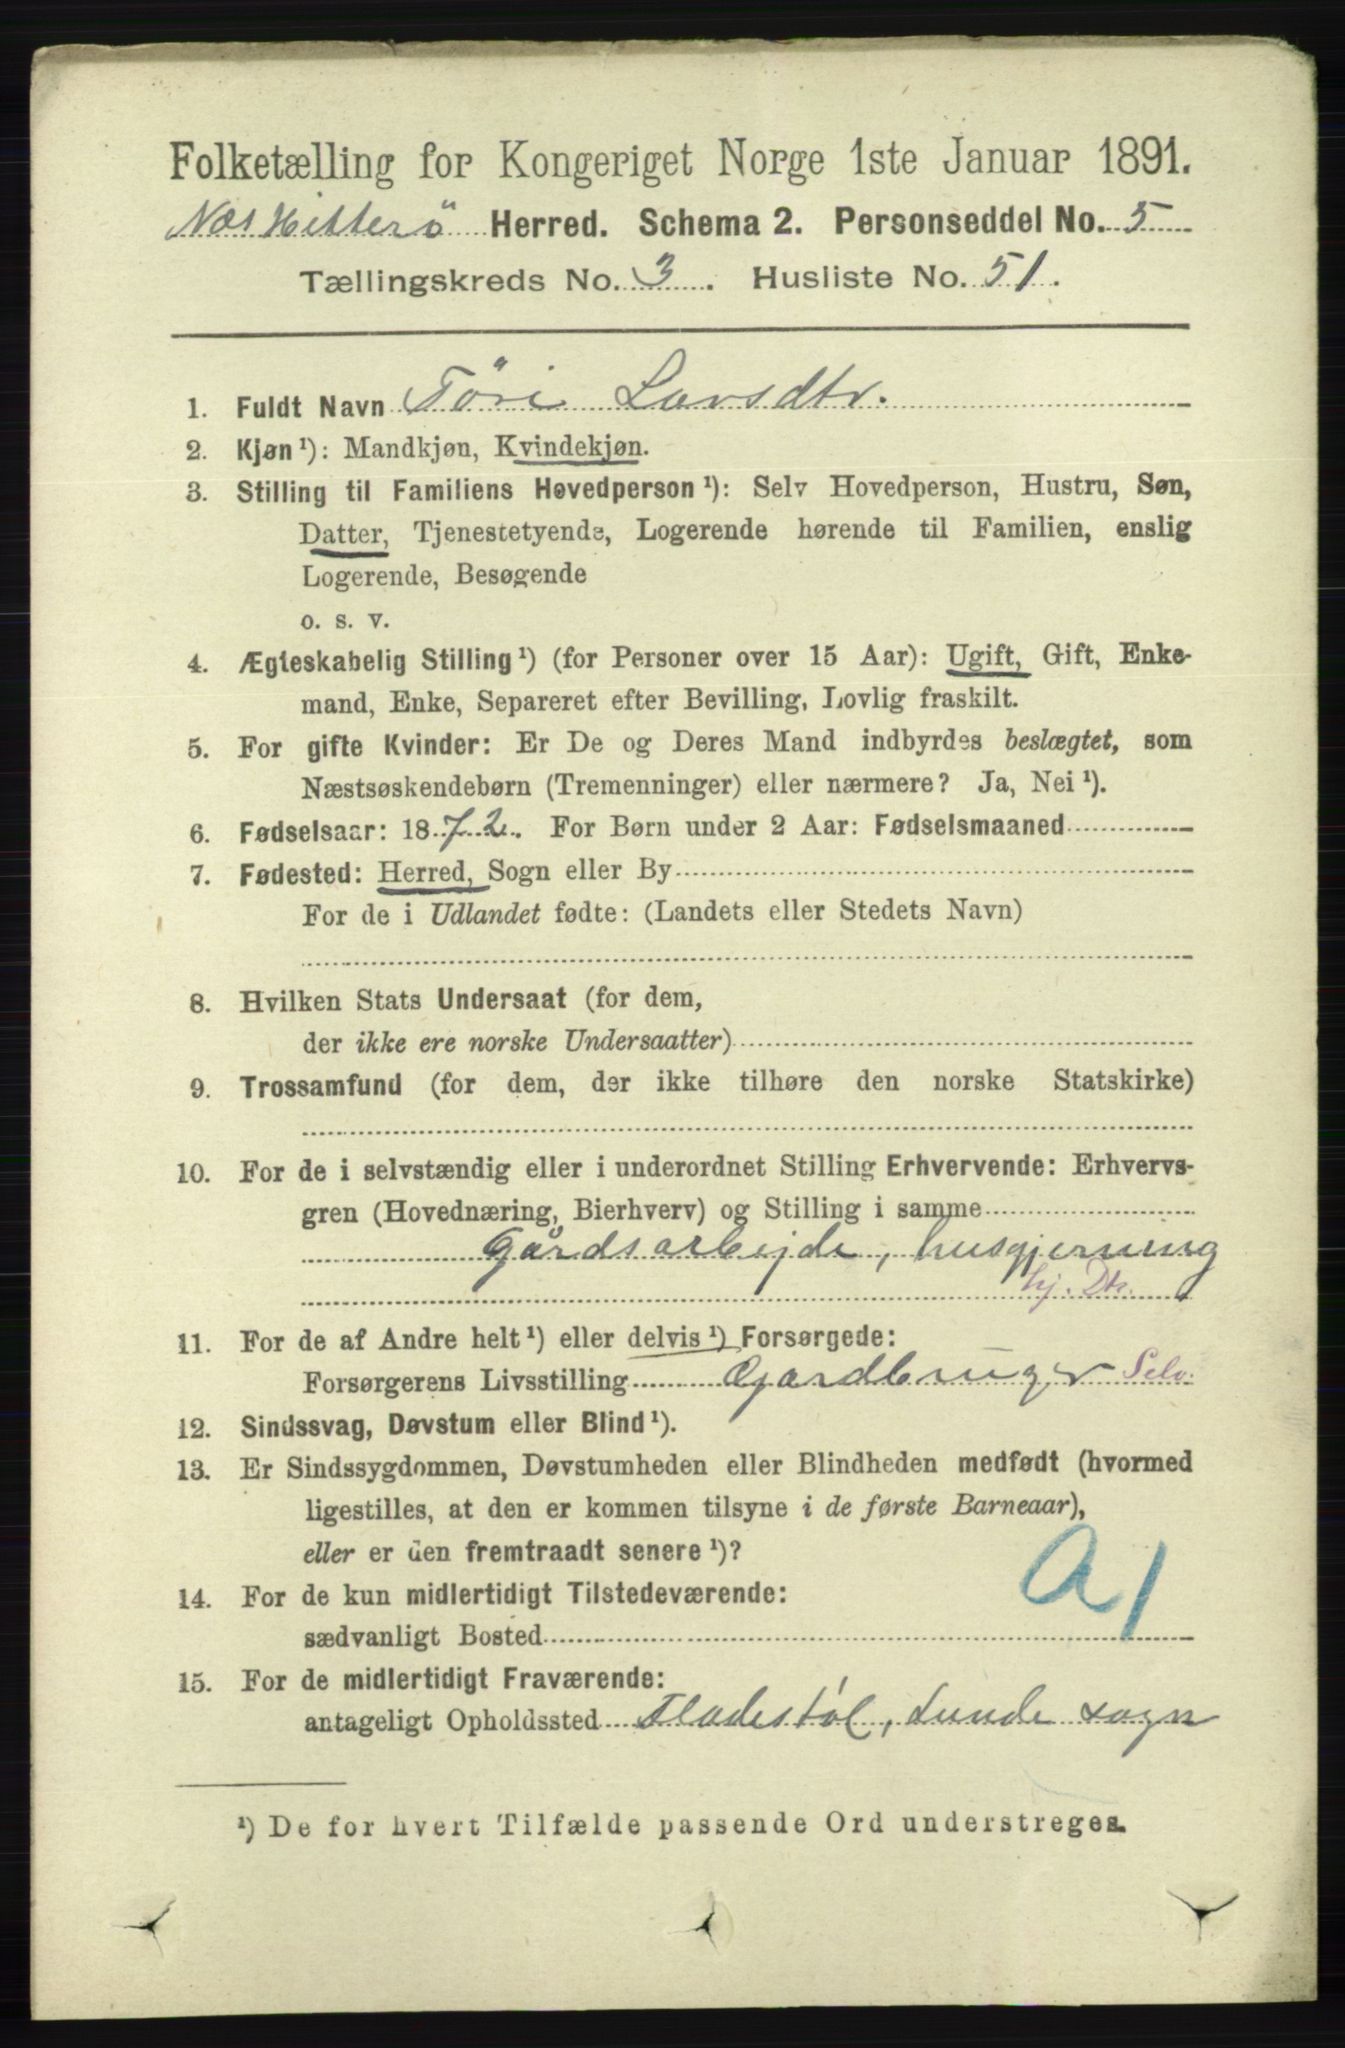 Folketælling for Kongeriget Norge 1ste Januar 1891.
Næs Hitterö Herred. Schema 2. Personseddel No. 5
Tællingskreds No. 3. Husliste No. 51.
1. Fuldt Navn Töri Larsdtr.
2. Kjøn¹): Mandkjøn, Kvindekjøn.
3. Stilling til Familiens Hovedperson¹): Selv Hovedperson, Hustru, Søn,
Datter, Tjenestetyende, Logerende hørende til Familien, enslig
Logerende, Besøgende
o. s. v.
4. Ægteskabelig Stilling¹) (for Personer over 15 Aar): Ugift, Gift, Enke-
mand, Enke, Separeret efter Bevilling, Lovlig fraskilt.
5. For gifte Kvinder: Er De og Deres Mand indbyrdes beslægtet, som
Næstsøskendebørn (Tremenninger) eller nærmere? Ja, Nei¹).
6. Fødselsaar: 1872. For Børn under 2 Aar: Fødselsmaaned
7. Fødested: Herred, Sogn eller By
For de i Udlandet fødte: (Landets eller Stedets Navn)
8. Hvilken Stats Undersaat (for dem,
der ikke ere norske Undersaatter)
9. Trossamfund (for dem, der ikke tilhøre den norske Statskirke)
10. For de i selvstændig eller i underordnet Stilling Erhvervende: Erhvervs-
gren (Hovednæring, Bierhverv) og Stilling i samme
Gårdsarbejde, husgjerning
hj. Dtr.
11. For de af Andre helt¹) eller delvis¹) Forsørgede:
Forsørgerens Livsstilling Gardbruger Selv.
12. Sindssvag, Døvstum eller Blind¹).
13. Er Sindssygdommen, Døvstumheden eller Blindheden medfødt (hvormed
ligestilles, at den er kommen tilsyne i de første Barneaar),
eller er den fremtraadt senere¹)?
A1
14. For de kun midlertidigt Tilstedeværende:
sædvanligt Bosted
15. For de midlertidigt Fraværende:
antageligt Opholdssted Fladestøl, Lunde sogn
¹) De for hvert Tilfælde passende Ord understreges.